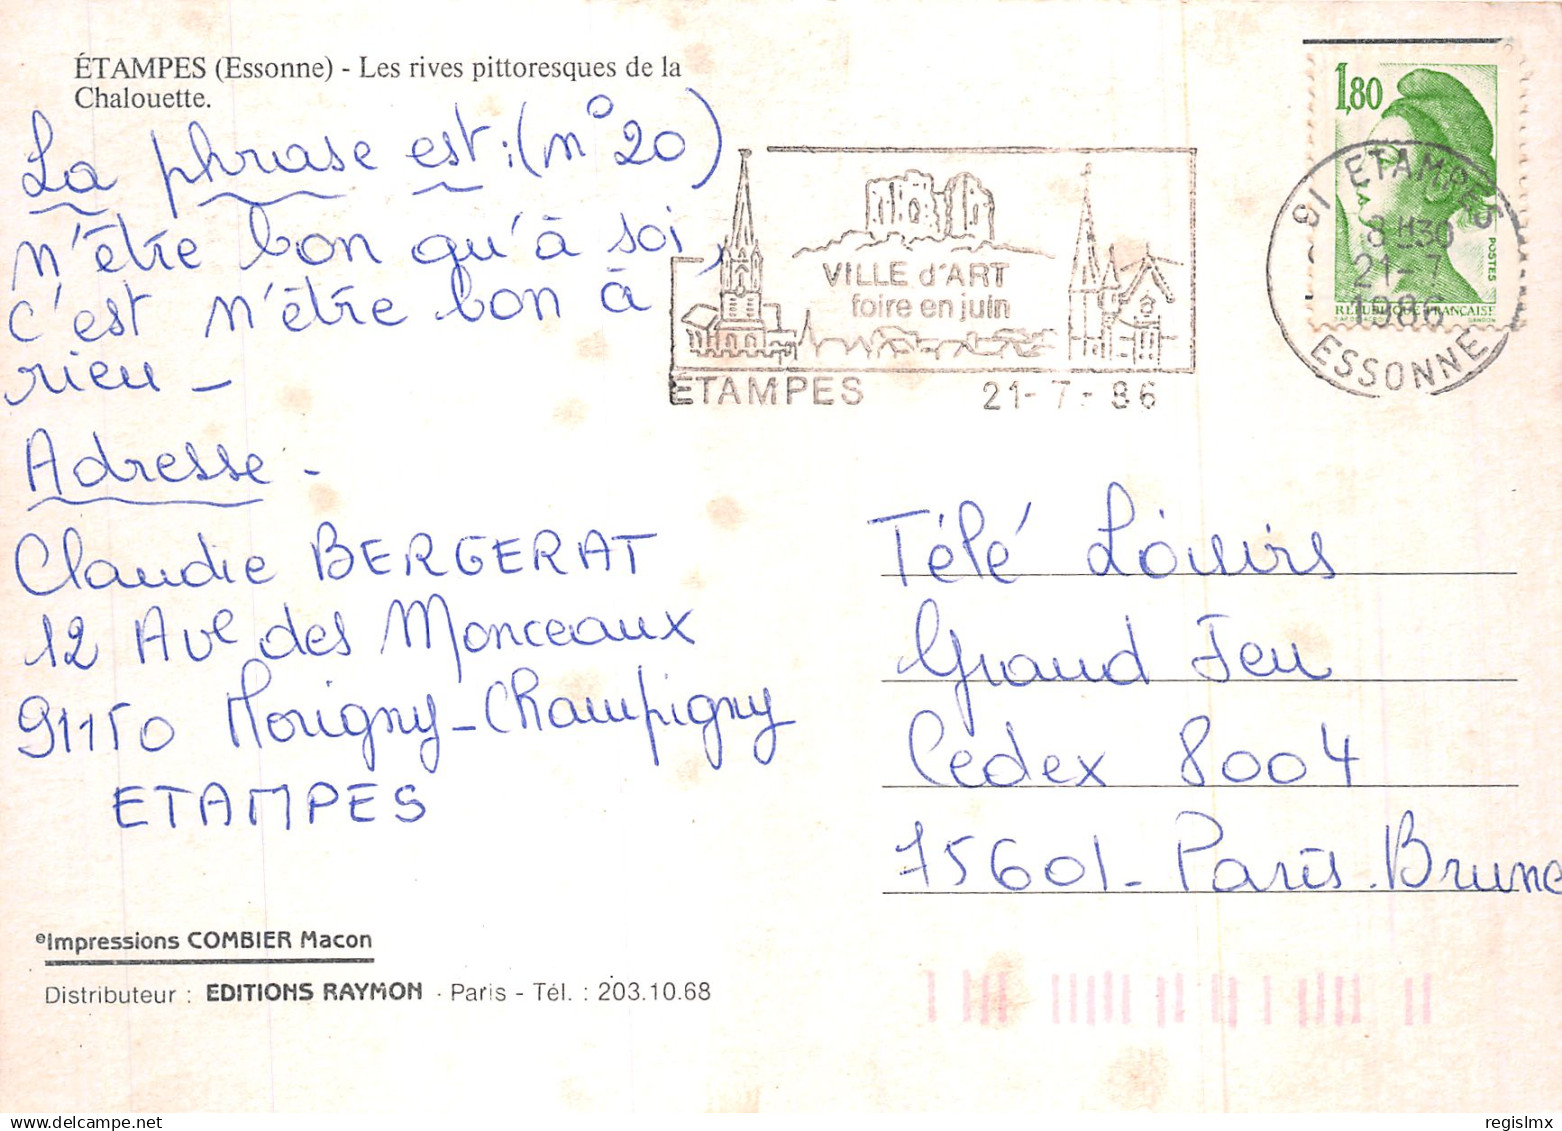 ÉTAMPES (Essonne) - Les rives pittoresques de la
Chalouette.
La phrase est : (n° 20)
n'être bon qu'à soi,
c'est n'être bon à
rien -
Adresse -
Claudie BERGERAT
12 Ave des Monceaux
91150 Morigny-Champigny
ETAMPES
©Impressions COMBIER Macon
Distributeur : EDITIONS RAYMON - Paris - Tél. : 203.10.68
VILLE d'ART
foire en juin
ÉTAMPES 21-7-86
1,80
POSTES
RÉPUBLIQUE FRANÇAISE
91 ETAMPES
8H30
21-7
1986
ESSONNE
Télé Loisirs
Grand Jeu
Cedex 8004
75601 - Paris. Brune
regislmx